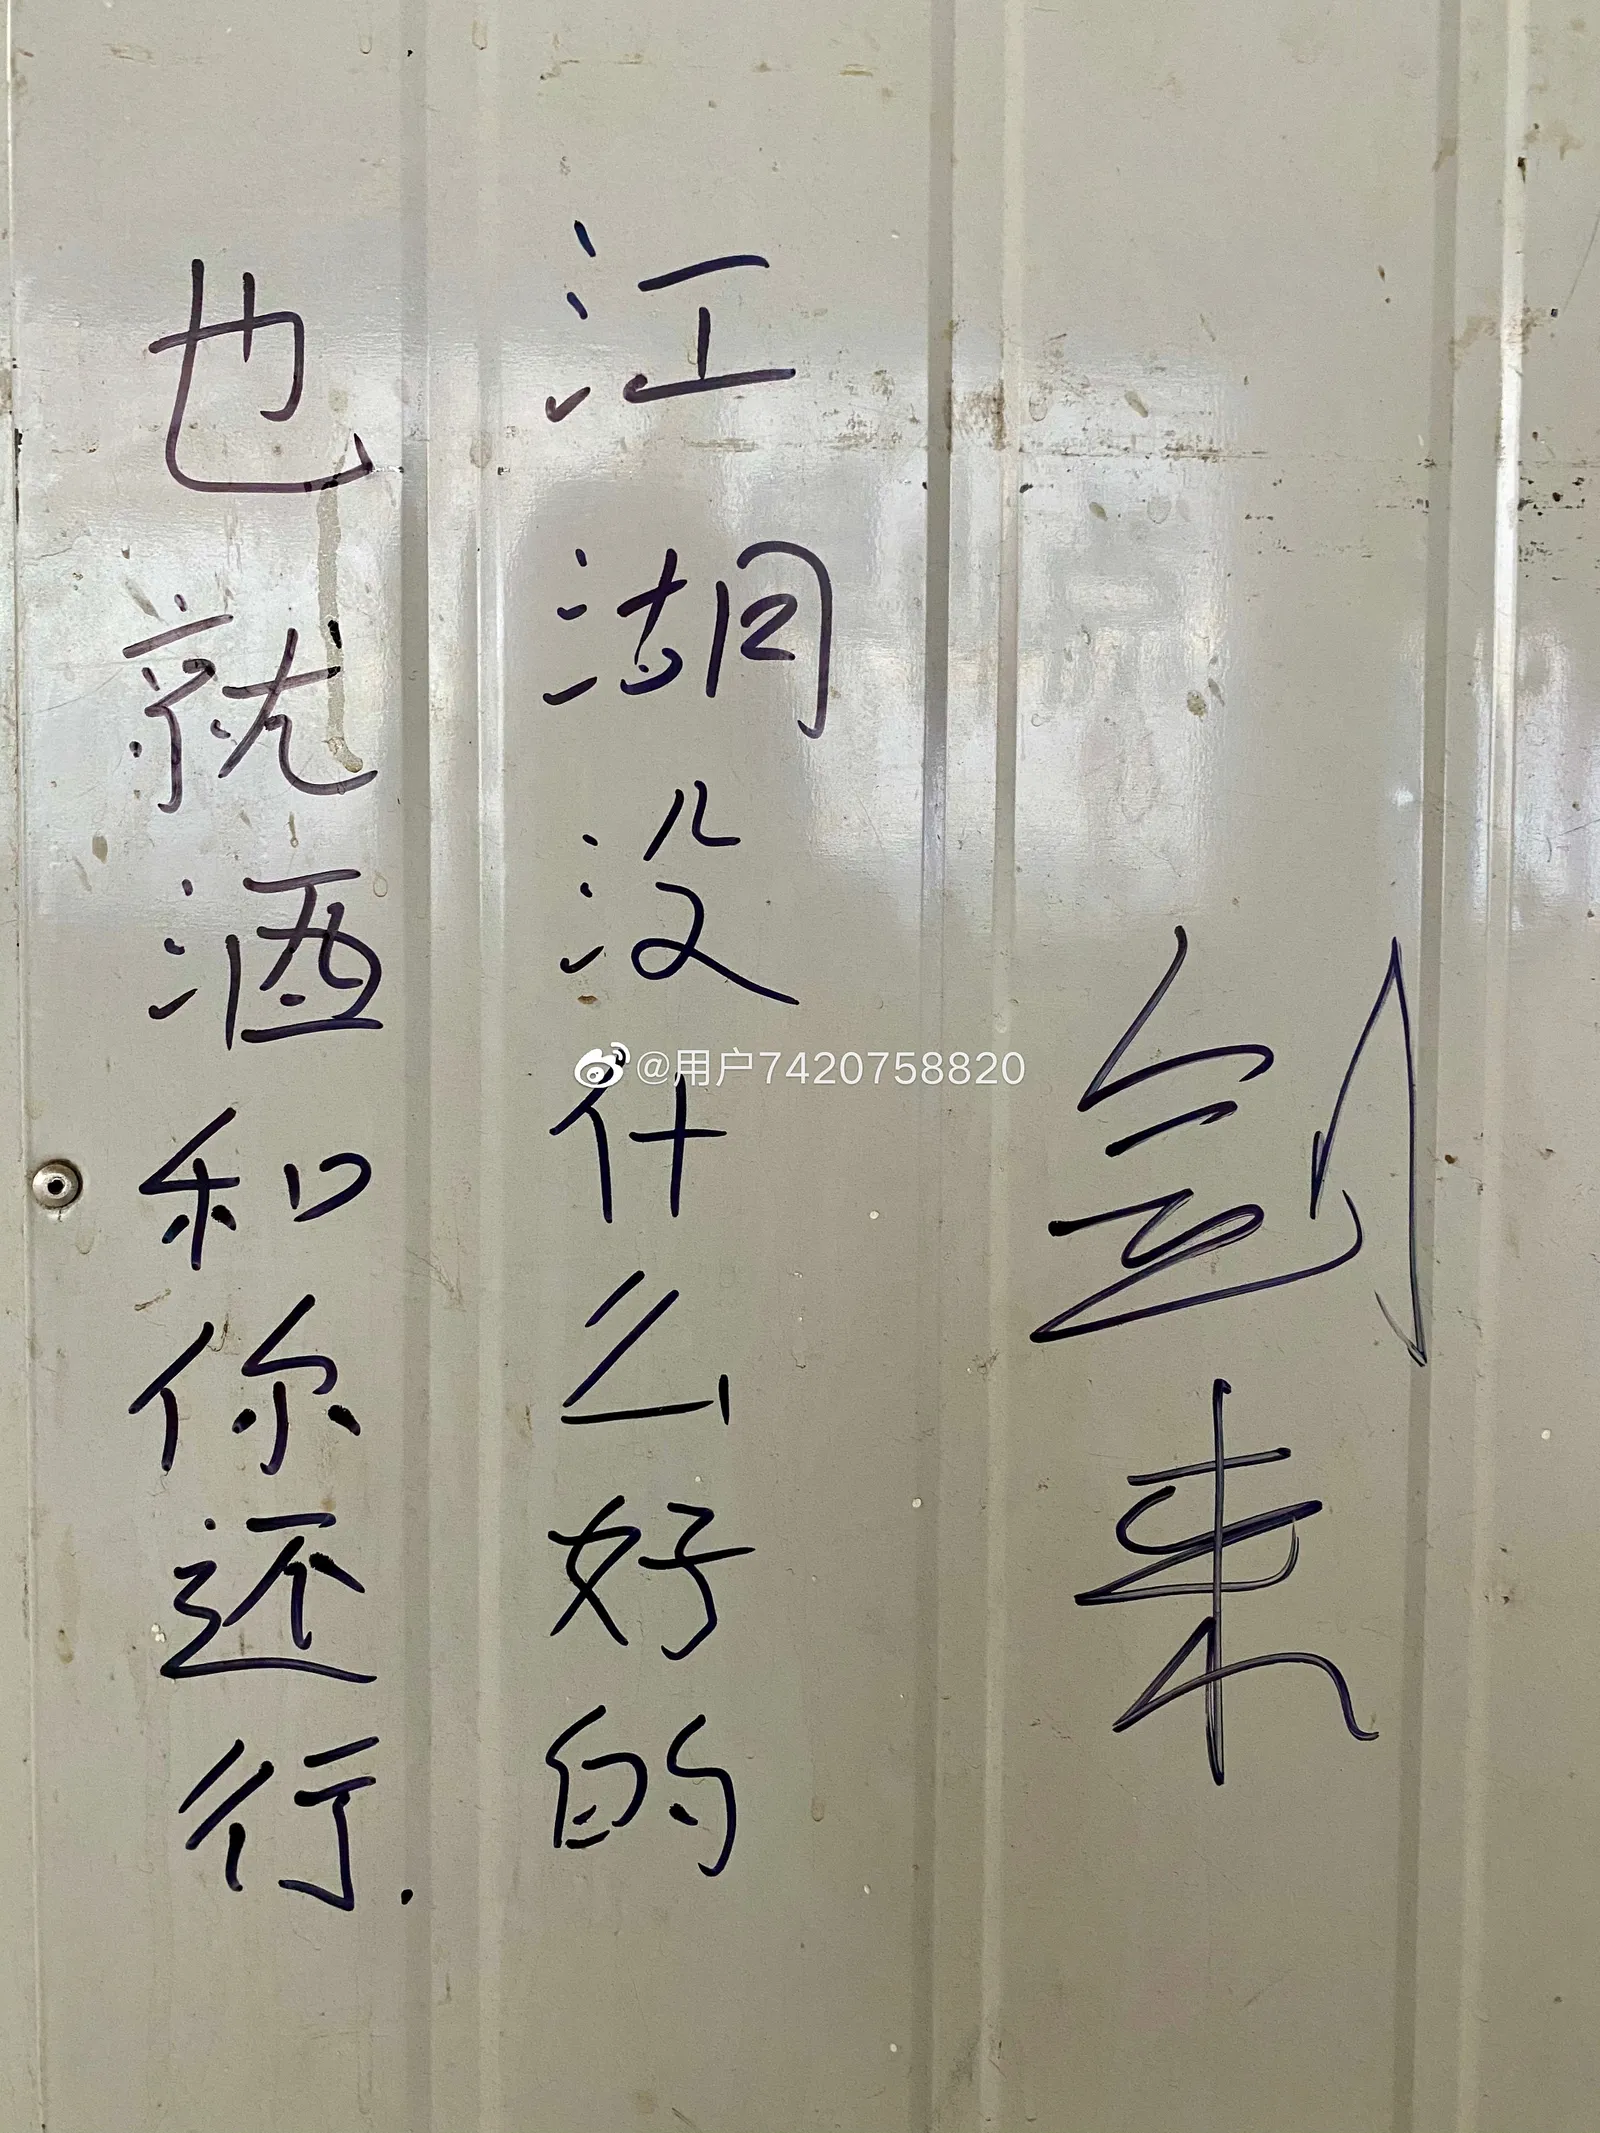 剑来
江湖没什么好的
也就酒和你还行.
@用户7420758820